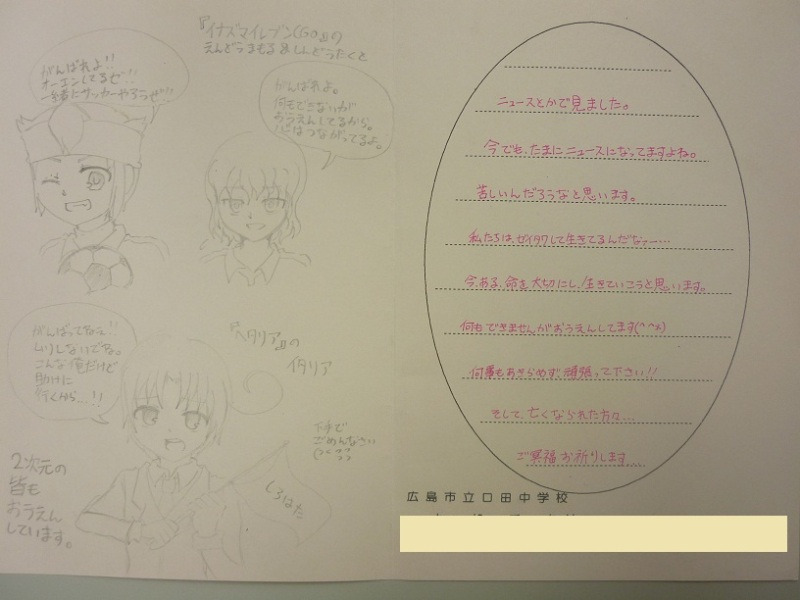 『イナズマイレブンGO』の
えんどうまもる&しんどうたくと
がんばれよ!!
オーエンしてるぜ!!
一緒にサッカーやろうぜ!!
がんばれよ。
何もできないが
おうえんしてるから。
心はつながってるよ。
がんばってね!!
ムリしないでね。
こんな俺だけど
助けに
行くから…!!
『ヘタリア』の
イタリア
下手で
ごめんなさい
しろはた
2次元の
皆も
おうえん
しています。
ニュースとかで見ました。
今でも、たまにニュースになってますよね。
苦しいんだろうなと思います。
私たちは、ゼイタクして生きてるんだなァー…
今、ある、命を大切にし、生きていこうと思います。
何もできませんがおうえんしてます(^^×)
何事もあきらめず、頑張って下さい!!
そして、亡くなられた方々…
ご冥福お祈りします…
広島市立口田中学校